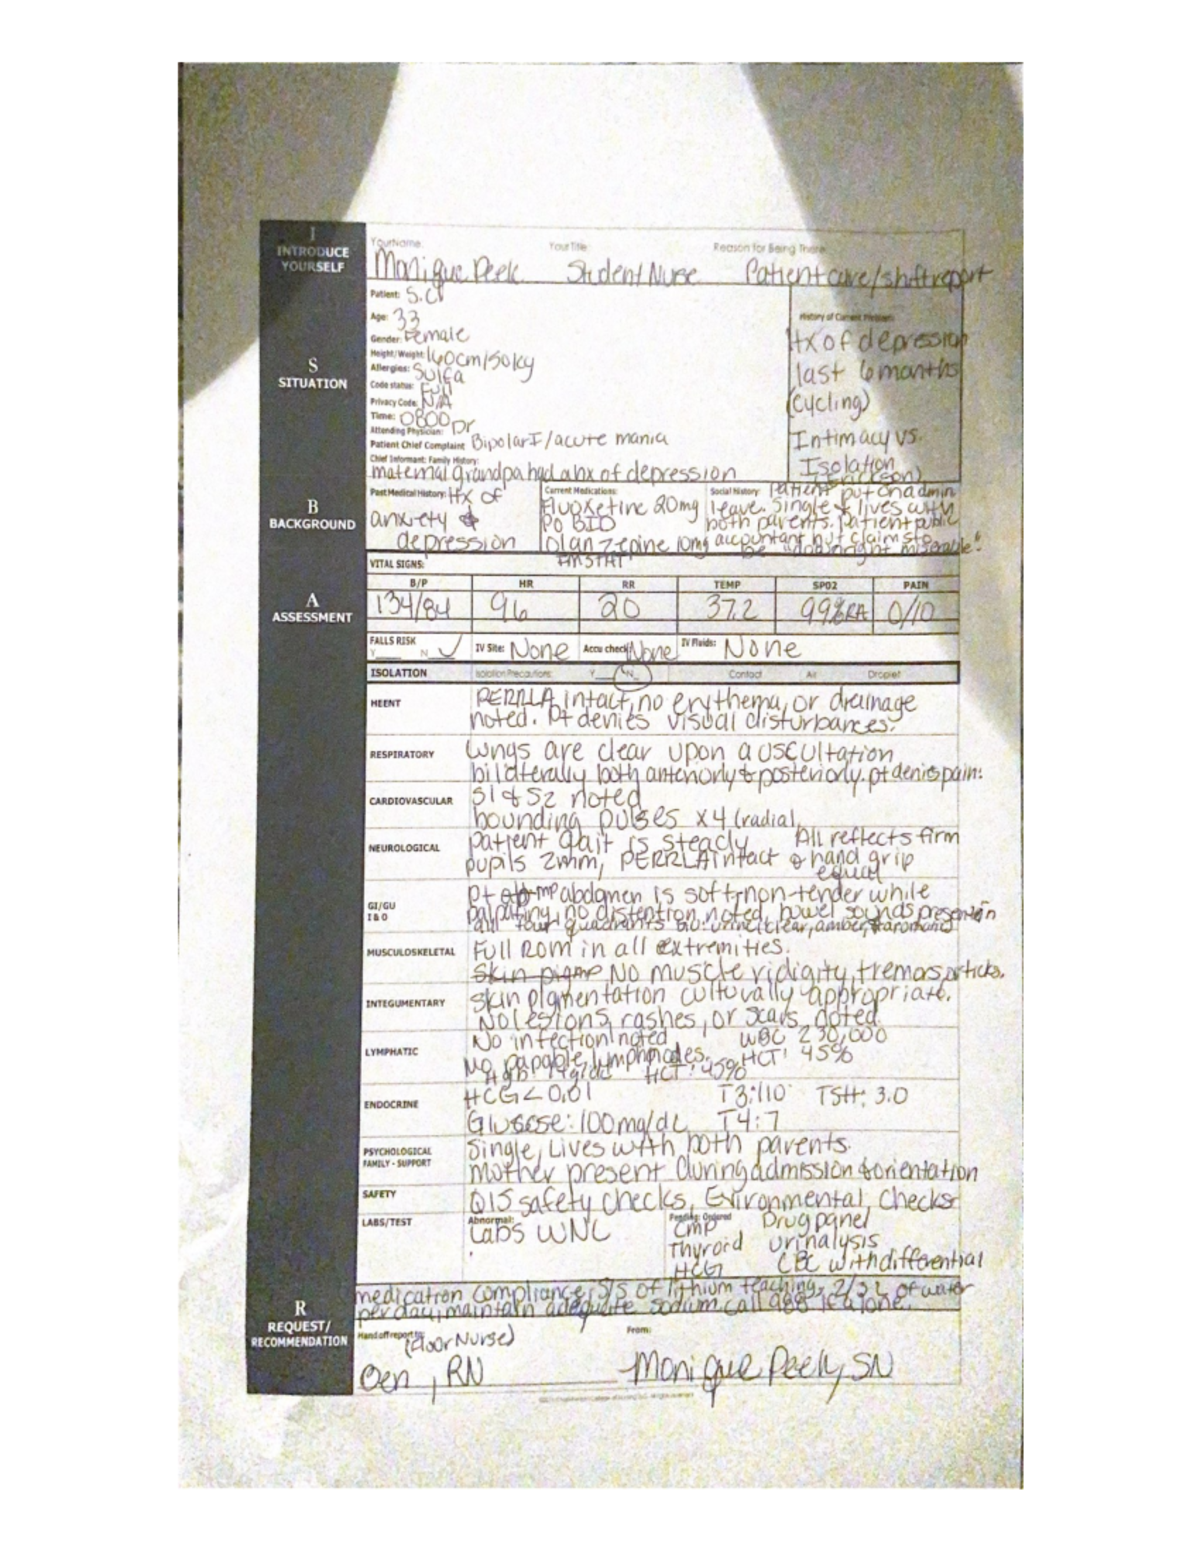 I
INTRODUCE
YOURSELF
Your Name: Your Title: Reason for Being There:
Monique Peek Student Nurse Patient care/shift report
S
SITUATION
Patient: S.C
Age: 33
Gender: Female
Height/Weight: 160cm/50kg
Allergies: Sulfa
Code status: Full
Privacy Code: N/A
Time: 0800
Attending Physician: Dr
Patient Chief Complaint Bipolar I/acute mania
Chief Informant: Family History:
maternal grandpa had a hx of depression
History of Current Problem:
Hx of depression
last 6 months
(cycling)
Intimacy vs.
Isolation
(Erickson)
B
BACKGROUND
Past Medical History: Hx of
anxiety &
depression
Current Medications:
Fluoxetine 20mg
PO BID
Olanzepine 10mg
IM STAT
Social History Patient put on admin
leave. Single & lives with
both parents. patient public
accountant but claims to
be "downright miserable".
A
ASSESSMENT
VITAL SIGNS:
B/P HR RR TEMP SPO2 PAIN
134/84 96 20 37.2 99% RA 0/10
FALLS RISK
Y N ✓ IV Site: None Accu check None IV Fluids: None
ISOLATION Isolation Precautions: Y N Contact Air Droplet
HEENT
PERRLA intact, no erythema, or drainage
noted. Pt denies visual disturbances.
RESPIRATORY
Lungs are clear upon auscultation
bilaterally both anteriorly & posteriorly. pt denies pain.
CARDIOVASCULAR
S1 & S2 noted
bounding pulses x4 (radial,
NEUROLOGICAL
patient gait is steady All reflects firm
pupils 2mm, PERRLA intact & hand grip
equal
GI/GU
I & O
Pt mp abdomen is soft, non-tender while
palpating, no distention noted, bowel sounds present in
all four quadrants urine (clear, amber,
MUSCULOSKELETAL
Full ROM in all extremities.
Skin pig mp No muscle ridigity, tremors, or ticks.
INTEGUMENTARY
Skin pigmentation culturally appropriate.
No lesions, rashes, or scars noted.
LYMPHATIC
No infection noted WBC 230,000
No papable lymphnodes. HCT: 45%
Hgb: 14g/dL HCT: 45%
ENDOCRINE
HCG < 0.01 T3: 110 TSH: 3.0
Glucose: 100mg/dL T4: 7
PSYCHOLOGICAL
FAMILY - SUPPORT
Single, Lives with both parents.
Mother present during admission & orientation
SAFETY
Q15 safety checks, Evironmental checks
LABS/TEST
Abnormal:
Labs WNL
Pending: Ordered
CMP Drug panel
Thyroid urinalysis
HCG CBC with differential
R
REQUEST/
RECOMMENDATION
medication compliance, S/S of lithium teaching, 2/3 L of water
per day, maintain adequate sodium, call 988 if alone.
Hand off report to: (floor Nurse) From:
Oen, RN Monique Peek, SN